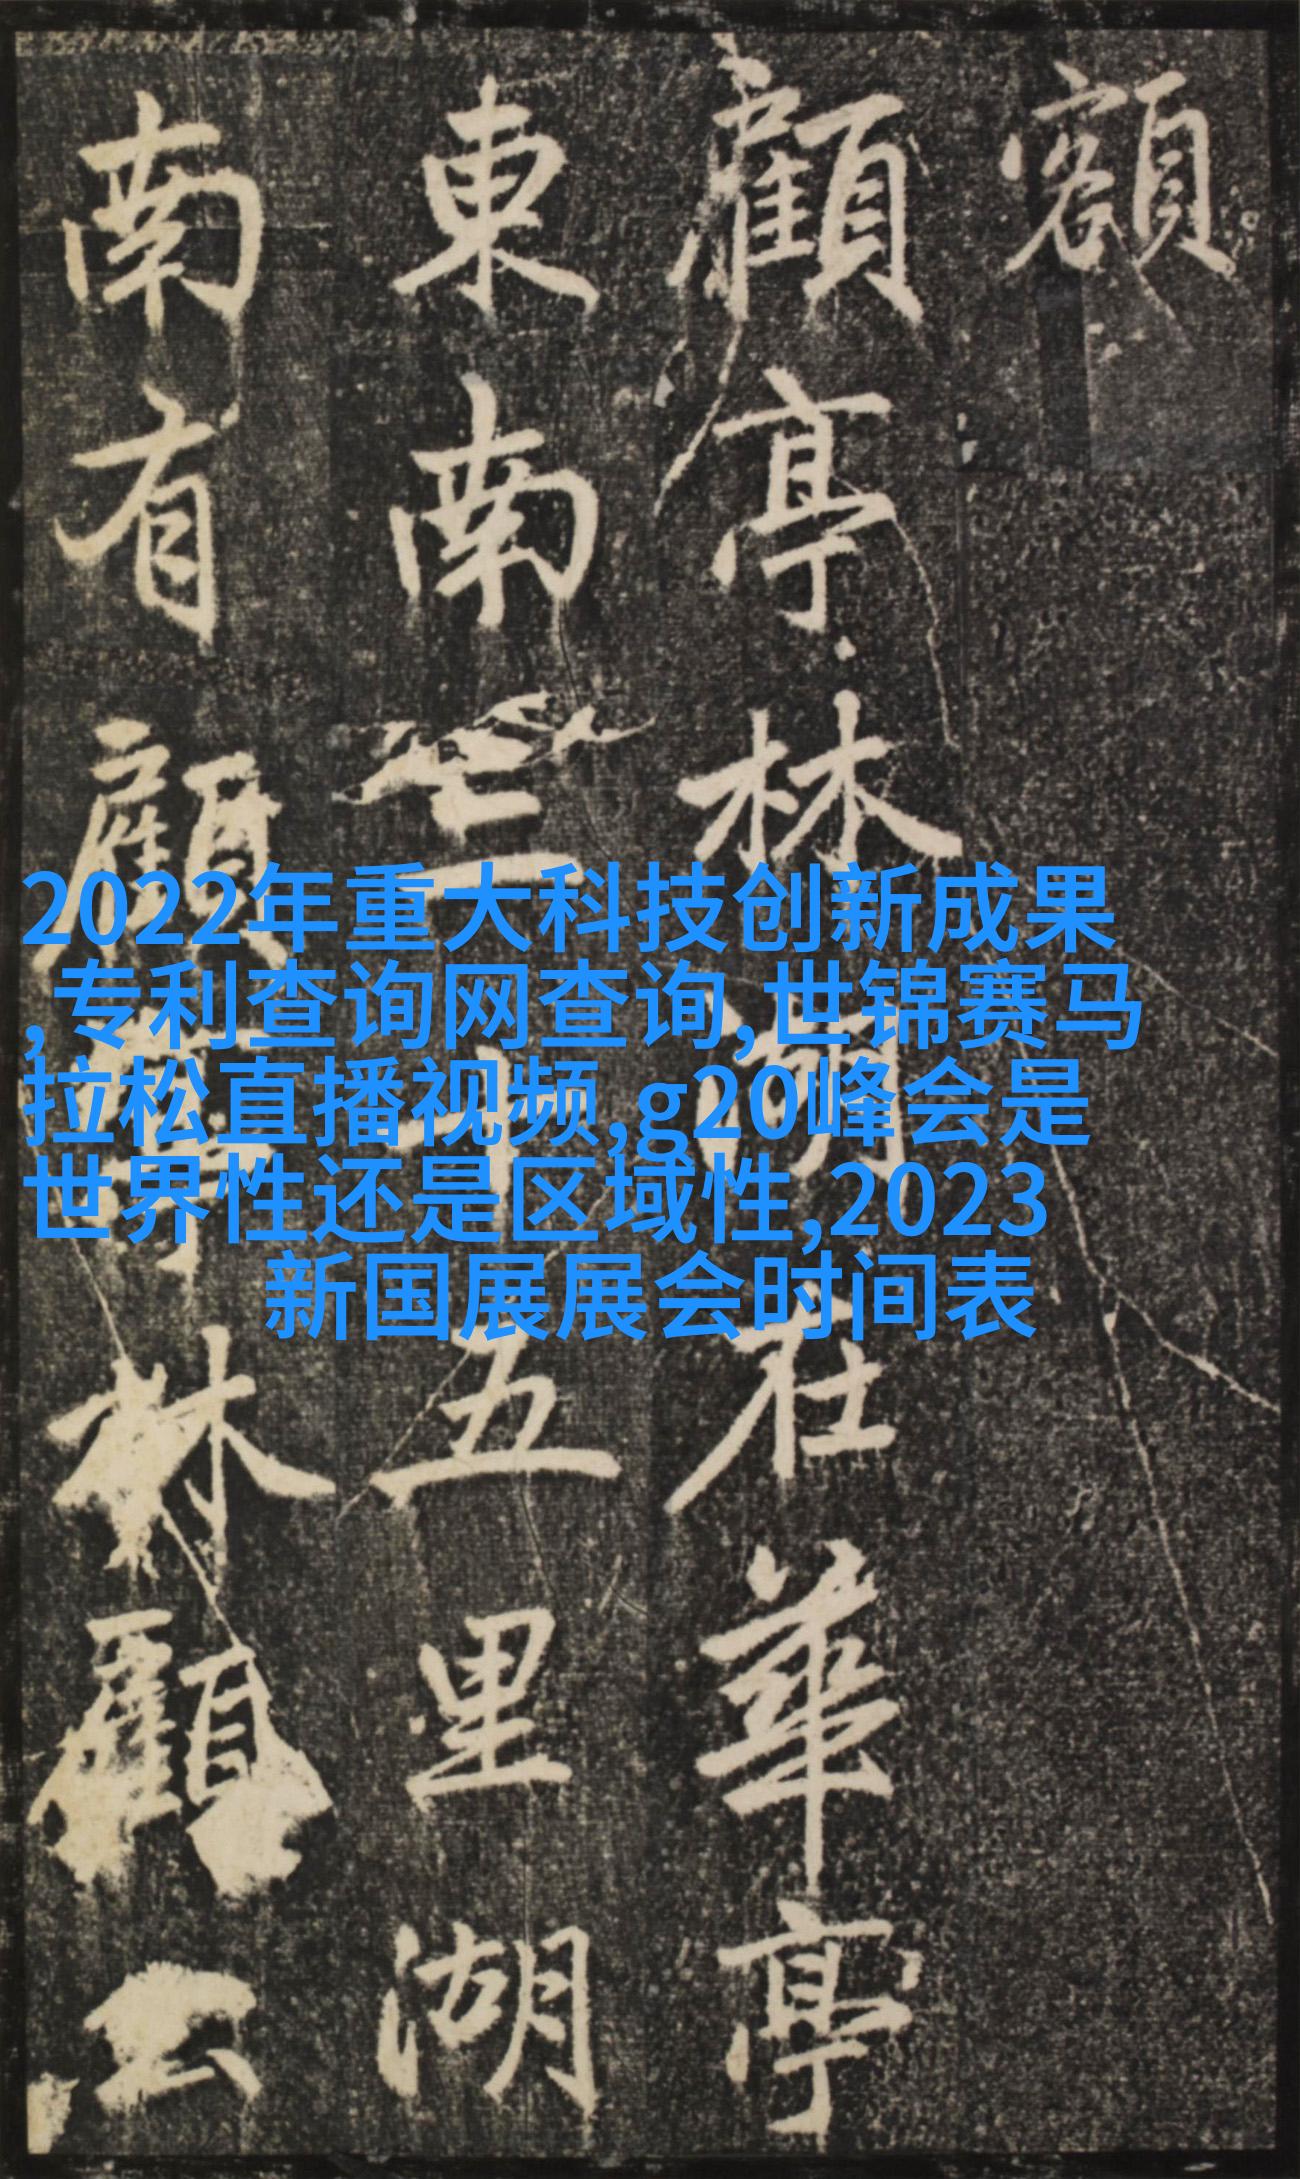 額
顧亭林湖在華亭
東南三十五里湖
南有顧亭林顧公
2022年重大科技创新成果
,专利查询网查询,世锦赛马
拉松直播视频,g20峰会是
世界性还是区域性,2023
新国展展会时间表